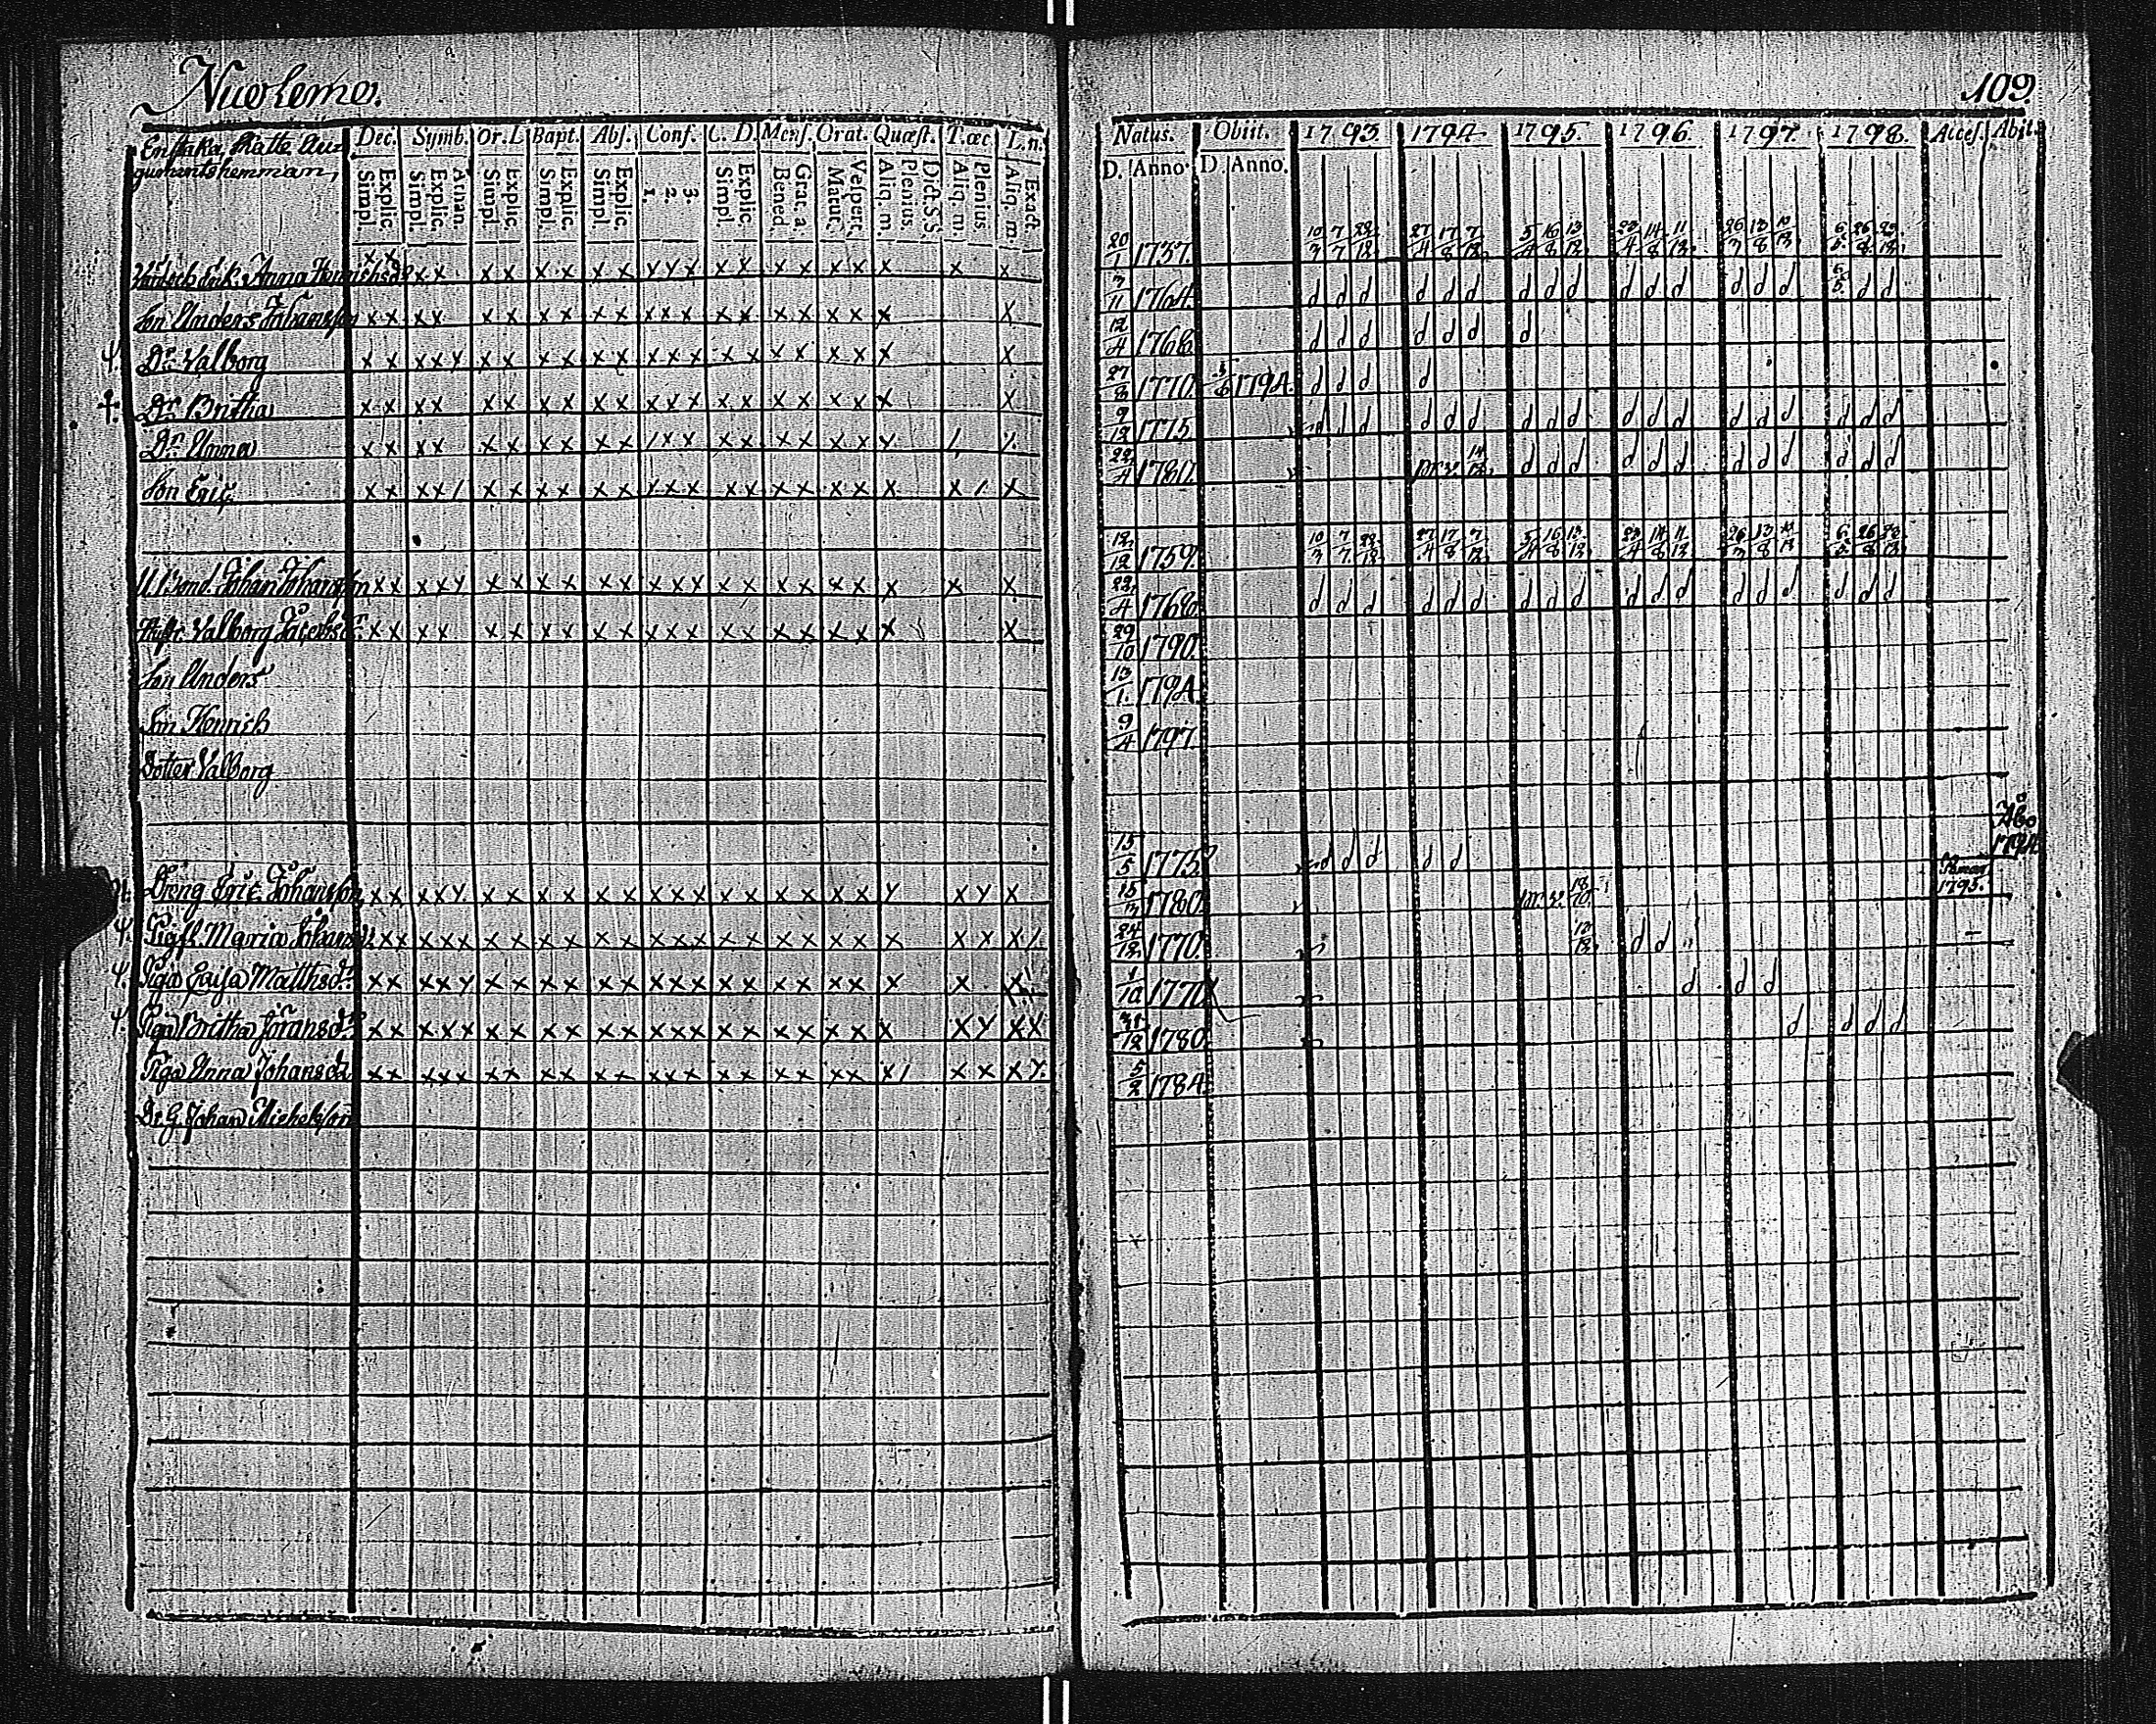 Nuolemo.
109.
Enstaka Ratte Au-
gumentshemman,
Dec. Symb. Or.D Bapt. Abſ. Conf. C. D. Menſ. Orat. Quæſt. T.œc. L.n.
Simpl. Explic. Simpl. Explic. Athan. Simpl. Explic. Simpl. Explic. Simpl. Explic. 1. 2. 3. Simpl. Explic. Bened. Grat. a. Matut. Veſpert. Aliq. m. Plenius. Dict.S S. Aliq. m. Plenius. Aliq. m. Exact.
Natus. Obiit. 1793. 1794. 1795. 1796. 1797. 1798. Acceſ. Abit.
D. Anno. D. Anno.
Anna Henrichsdr x x x x x x x x x x x x x x x x x x x x x x
20/1 1737. 10/3 7/7 28/12 27/4 17/8 7/12 5/4 16/8 13/12 23/4 14/8 11/12 26/3 13/8 10/12 6/5 26/8 23/12
Son Anders Johansson x x x x x x x x x x x x x x x x x x x x x
3/11 1764. d d d d d d d d d d d d d d d 6/5 d d
Dr. Valborg x x x x y x x x x x x x x x x x x x x x x x
12/4 1768. d d d d d d d
†. Dr. Britha x x x x x x x x x x x x x x x x x x x x x
27/8 1770. 5/6 1794. d d d d
Dr. Anna x x x x x x x x x x / x x x x x x x x x / /.
9/12 1775. d d d d d d d d d d d d d d d d d d
Son Eric x x x x / x x x x x x x x x x x x x x x x x / x
22/4 1780. 14/12 d d d d d d d d d d d d
Johan Johansson x x x x y x x x x x x x x x x x x x x x x x x
12/12 1759. 10/3 7/7 28/12 27/4 17/8 7/12 5/4 16/8 13/12 23/4 14/8 11/12 26/3 13/8 10/12 6/5 26/8 23/12
Hustr. Valborg Jacobsdr. x x x x x x x x x x x x x x x x x x x x x
22/4 1768. d d d d d d d d d d d d d d d d d d
Son Anders
29/10 1790.
Son Henrich
13/1. 1794.
Dotter Valborg
9/4 1797.
Dreng Eric Johansson x x x x y x x x x x x x x x x x x x x x y x y x
15/5 1775. d d d d d Åbo
1794.
Pigf. Maria Johansd. x x x x x x x x x x x x x x x x x x x x x x x x /
15/3 1780. 18/10 1795.
Piga Caisa Matthsdr. x x x x y x x x x x x x x x x x x x x x x x x
24/12 1770. 13/12 d d
Piga Britha Jöransdr. x x x x x x x x x x x x x x x x x x x x x x y x x
1/10 1770. d d d
Piga Anna Johansdr x x x x x x x x x x x x x x x x x x x x x / x x x y.
31/12 1780. d d d d
Johan Michelsson
5/2 1784.